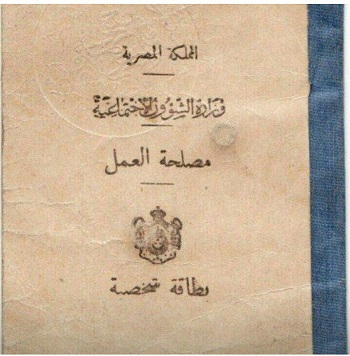 المملكة المصرية
وزارة الشؤون الاجتماعية
مصلحة العمل
بطاقة شخصية